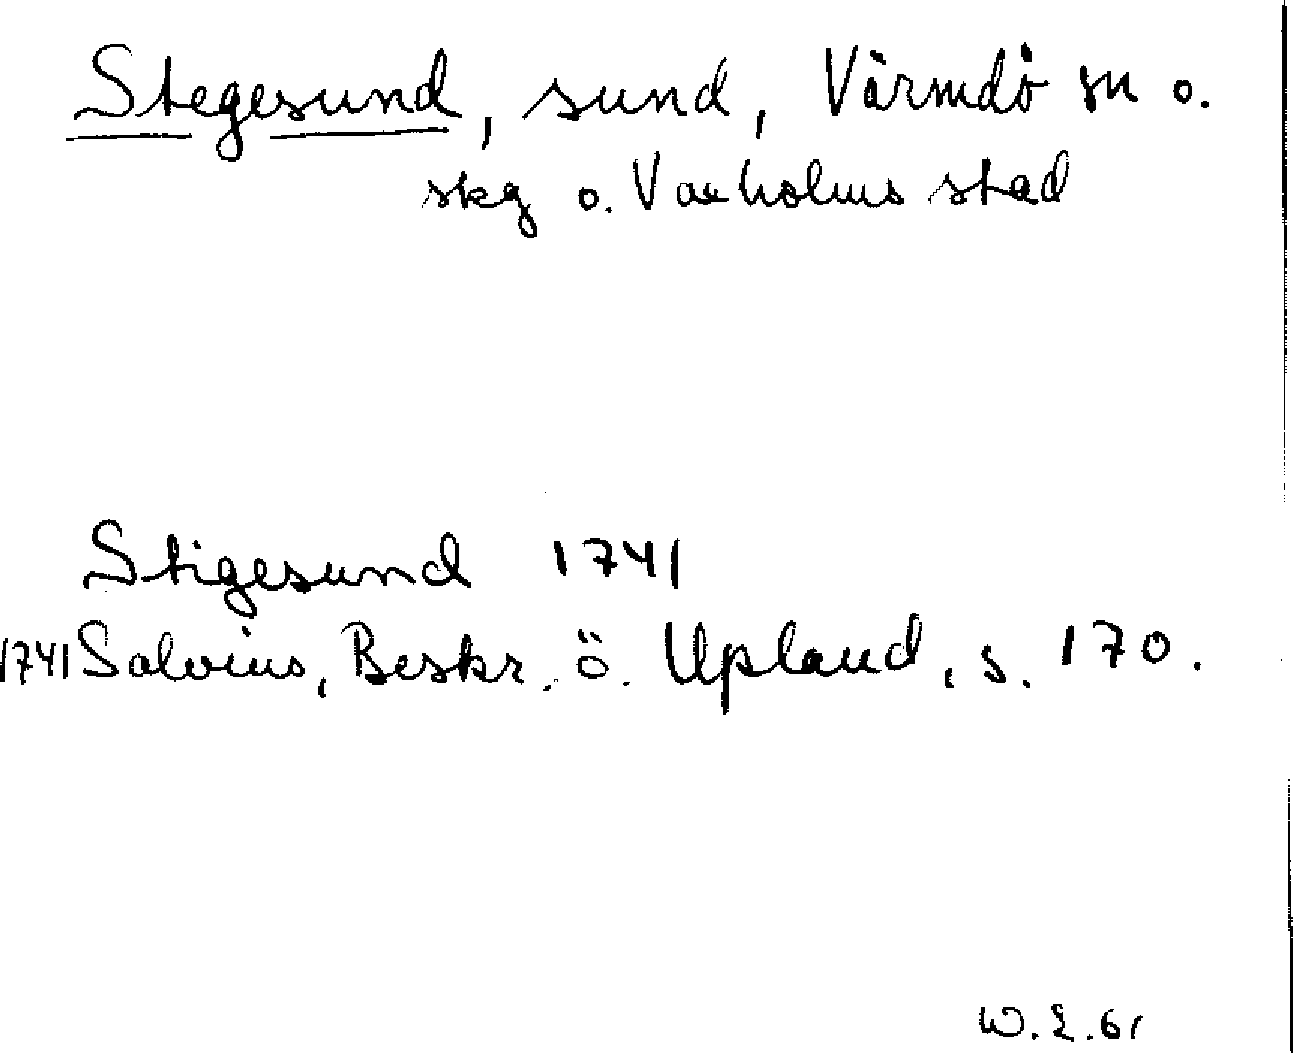 Stegesund, sund, Värmdö sn o.
skg o. Vaxholms stad
Stigesund 1741
1741 Salvius, Beskr. ö. Upland, s. 170.
W.L.61